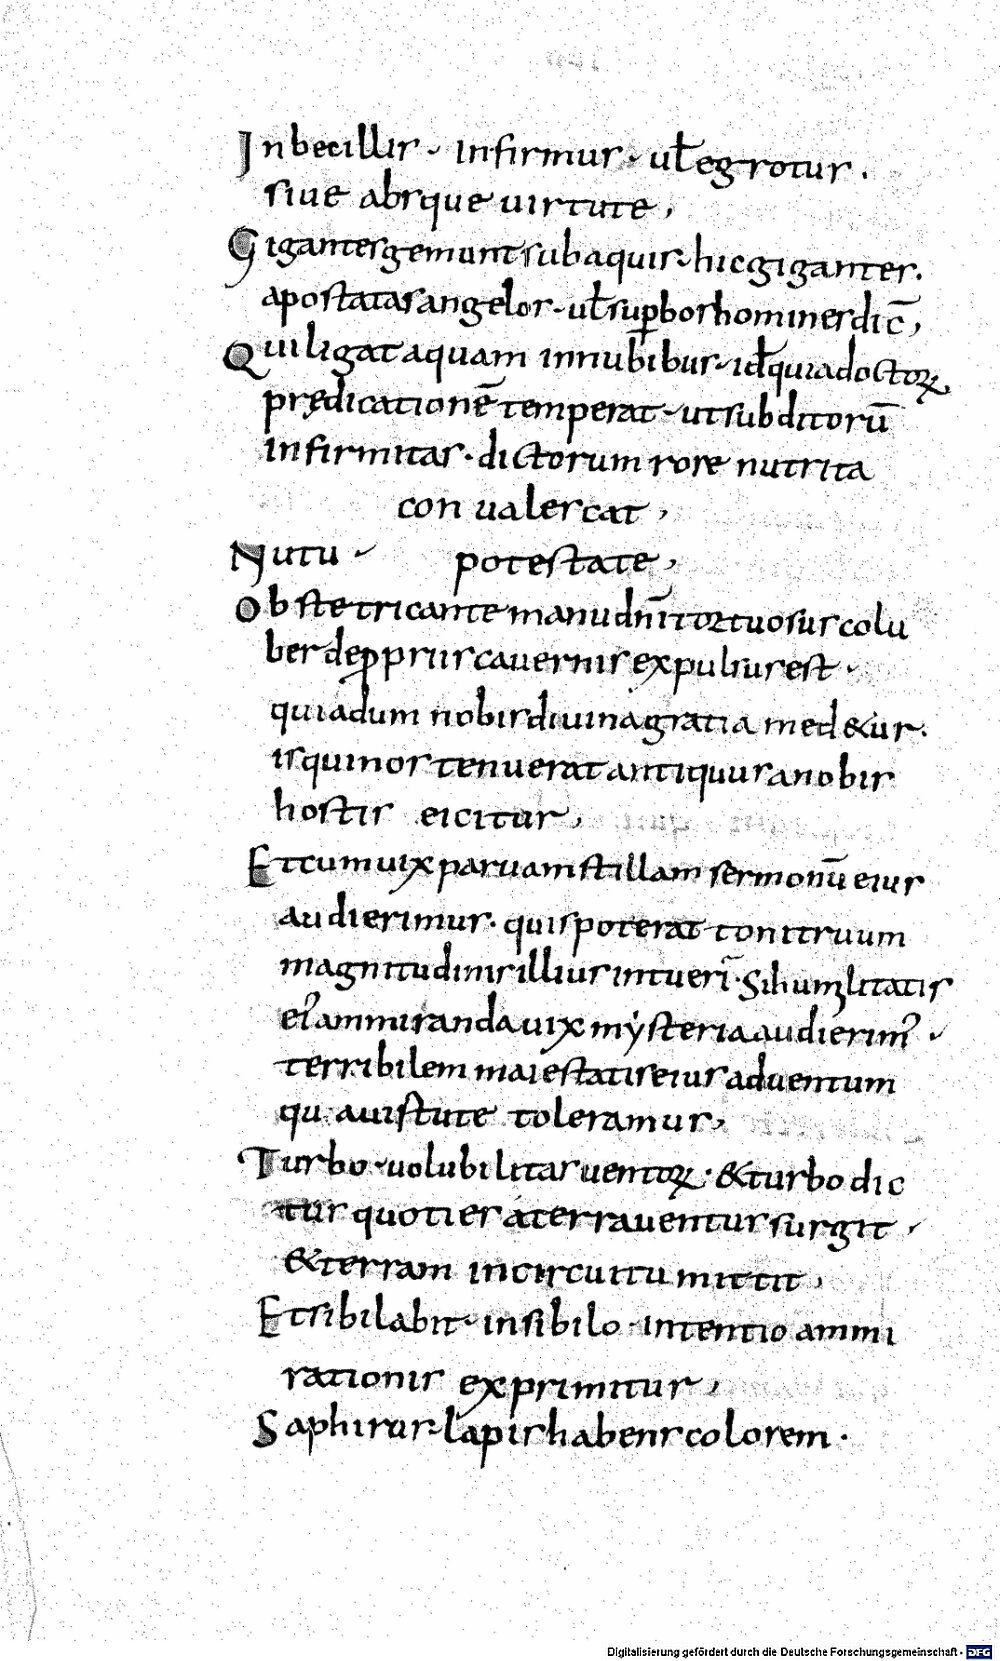 Inbecillis · infirmus · uł egrotus ·
siue absque uirtute ,
Gigantes gemunt sub aquis · hic gigantes ·
apostatas angelos · uł suꝑbos homines dic̄ ,
Qui ligat aquam in nubibus · idł quia doctoꝝ
prędicationē temperat · ut subditorū
infirmitas · dictorum rore nutrita
conualescat ,
Nutu · potestate ,
Obstetricante manu dn̄i tortuosus colu
ber de ꝓpriis cauernis expulsus est ·
quia dum nobis diuina gratia med&ur ·
is qui nos tenuerat antiquus a nobis
hostis eicitur ,
Et cum uix paruam stillam sermonū eius
audierimus · quis poterat tonitruum
magnitudinis illius intueri · Si humilitatis
ei᾽ ammiranda uix mẏsteria audierim᾽ ·
terribilem maiestatis eius aduentum
qua uistute toleramus ,
Turbo · uolubilitas uentoꝝ · & turbo dic
tur quoties á terra uentus surgit ·
& terram in circuitu mittit ,
Et sibilabit · in sibilo · intentio ammi
rationis exprimitur ,
Saphirus · lapis habens colorem ·
Digitalisierung gefördert durch die Deutsche Forschungsgemeinschaft - DFG